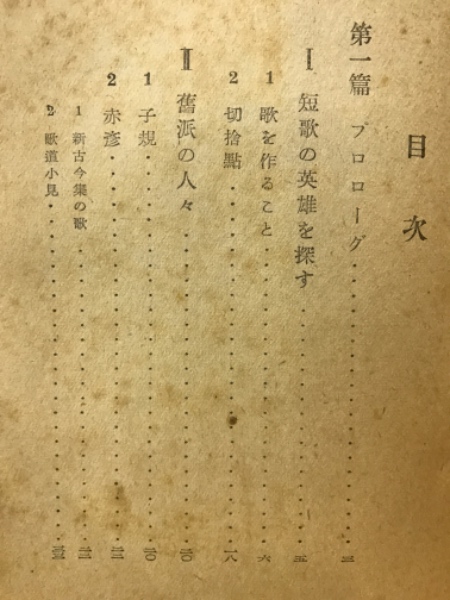 目次
第一篇 プロローグ
Ⅰ 短歌の英雄を探す
1 歌を作ること 六
2 切捨點 一八
Ⅱ 舊派の人々 二〇
1 子規 二〇
2 赤彦
1 新古今集の歌
2 歌道小見